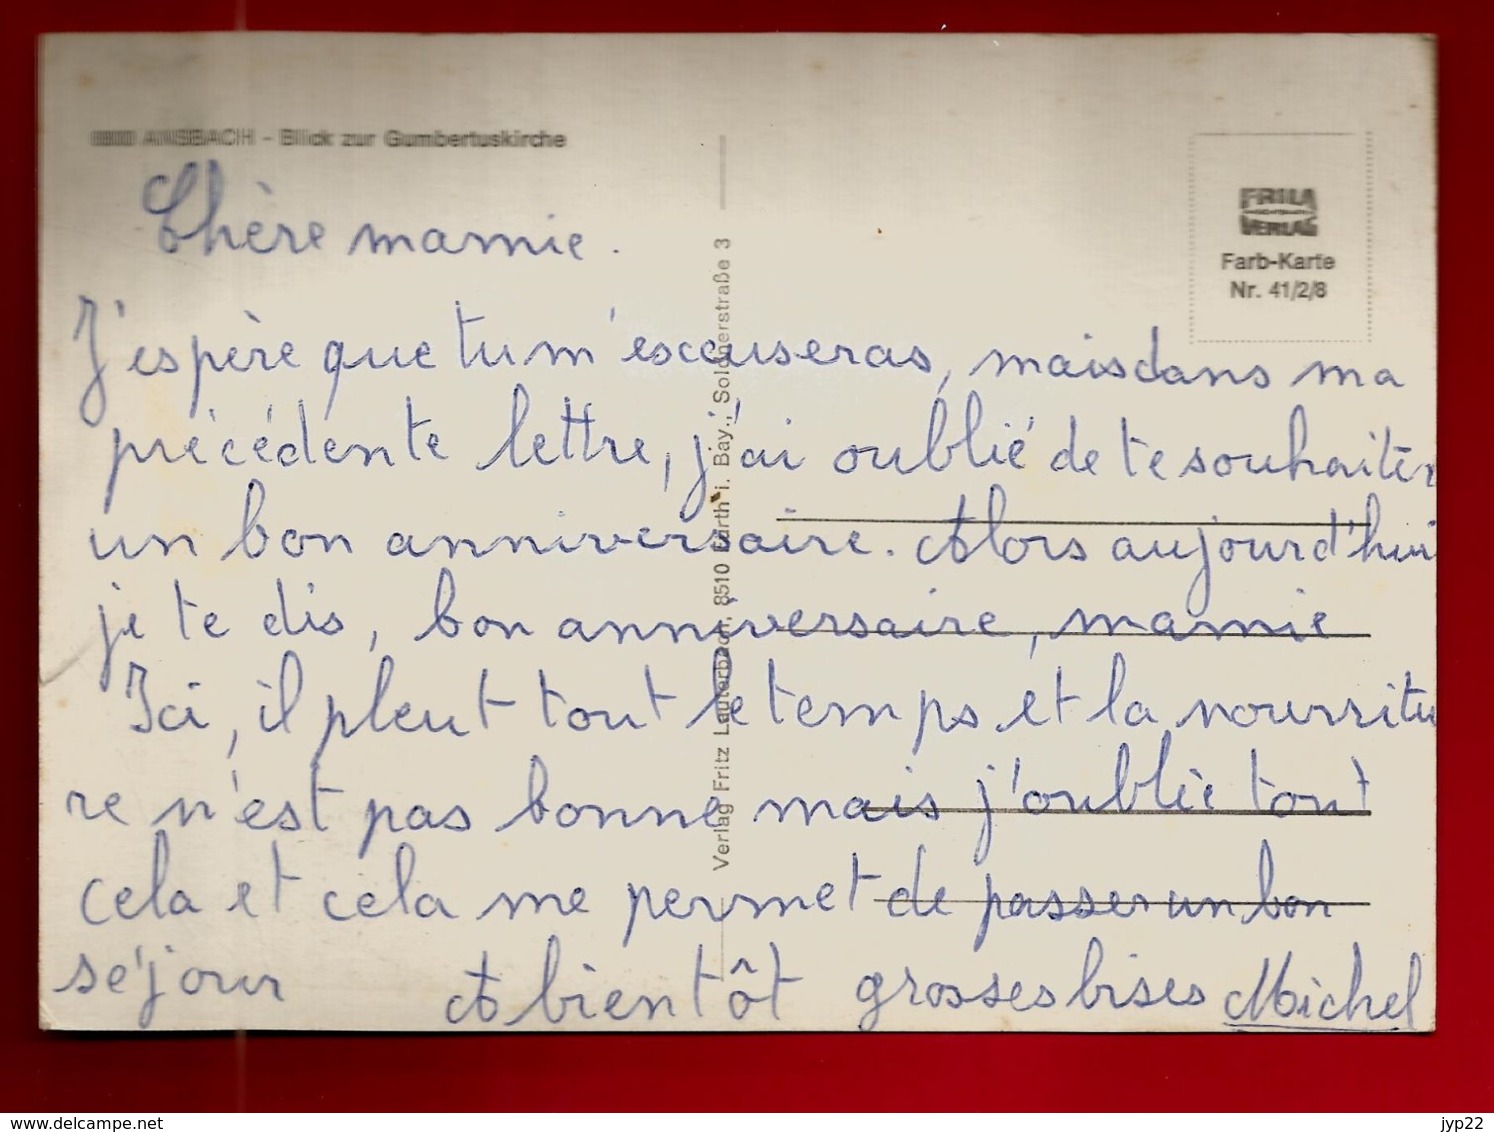 8800 ANSBACH - Blick zur Gumbertuskirche
FRILA
VERLAG
Farb-Karte
Nr. 41/2/8
Chère mamie.
J'espère que tu m'escuseras, mais dans ma
précédente lettre, j'ai oublié de te souhaiter
un bon anniversaire. Alors aujourd'hui
je te dis, bon anniversaire, mamie
Ici, il pleut tout le temps et la nourritu
re n'est pas bonne mais j'oublie tout
cela et cela me permet de passer un bon
séjour A bientôt grosses bises Michel
Verlag Fritz Lauterbach, 8510 Fürth i. Bay., Soldnerstraße 3
www.delcampe.net
jyp22